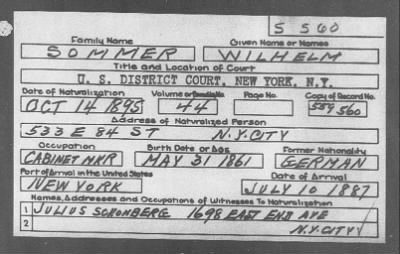 S 560
Family Name Given Name or Names
SOMMER WILHELM
Title and Location of Court
U. S. DISTRICT COURT, NEW YORK, N.Y.
Date of Naturalization Volume or Bundle No. Page No. Copy of Record No.
OCT 14 1895 44 559 560
Address of Naturalized Person
533 E 84 ST N.Y.CITY
Occupation Birth Date or Age Former Nationality
CABINET MKR MAY 31 1861 GERMAN
Port of Arrival in the United States Date of Arrival
NEW YORK JULY 10 1887
Names, Addresses and Occupations of Witnesses To Naturalization
1 JULIUS SCHONBERG 1698 EAST END AVE
2 N.Y.CITY